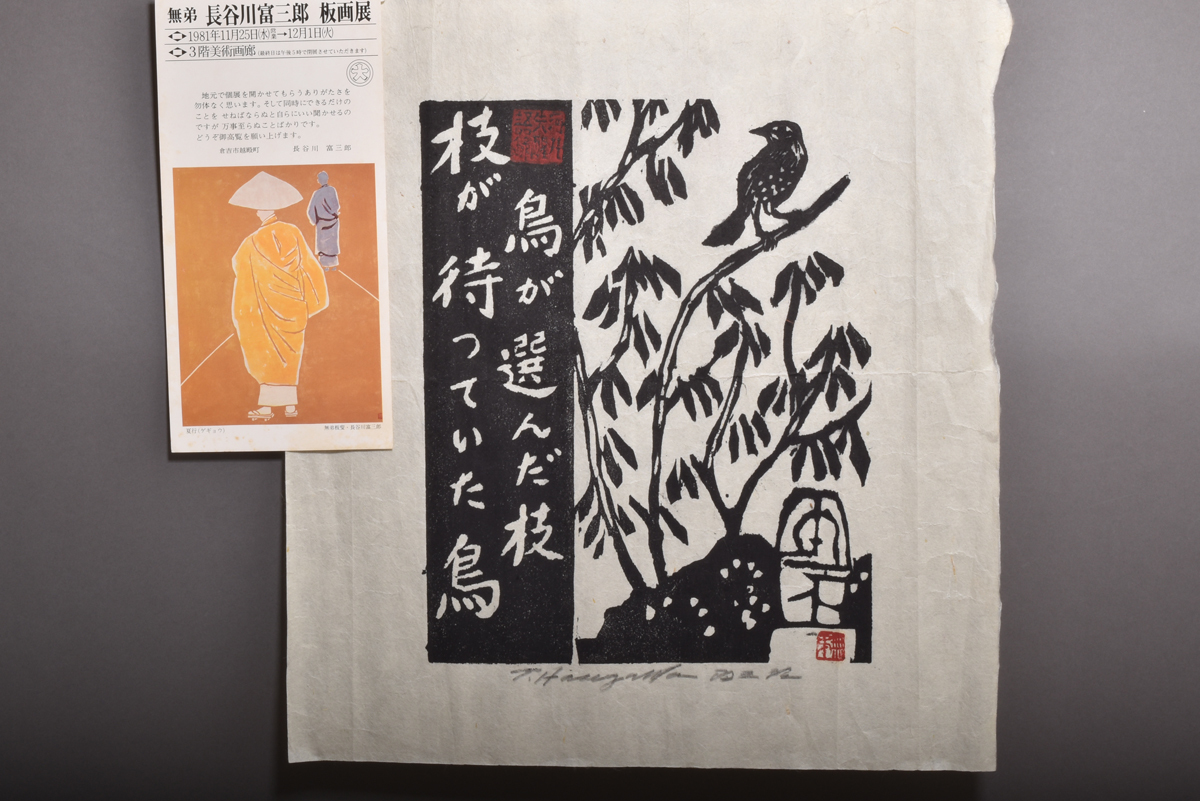 無弟 長谷川富三郎 板画展
1981年11月25日(水)→12月1日(火)
3階美術画廊(最終日は午後5時で閉場させていただきます)
大
地元で個展を開かせてもらうありがたさを
勿体なく思います。そして同時にできるだけの
ことを せねばならぬと自らにいい聞かせるの
ですが 万事至らぬことばかりです。
どうぞ御高覧を願い上げます。
倉吉市越殿町 長谷川 富三郎
夏行(ゲギョウ)
無弟板電・長谷川富三郎
鳥が選んだ枝
枝が待っていた鳥
無弟
T. Hasegawa